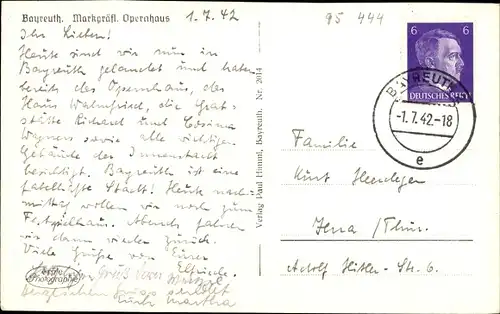 Bayreuth. Markgräfl. Opernhaus 1.7.42
95 444
Ihr Lieben!
Heute sind wir nun in
Bayreuth gelandet und haben
bereits das Opernhaus, das
Haus Wahnfried, die Grab-
stätte Richard und Cosima
Wagners sowie alle wichtigen
Gebäude der Innenstadt
besichtigt. Bayreuth ist eine
fabelhafte Stadt! Heute nach-
mittag wollen wir noch zum
Festspielhaus. Abends fahren
wir dann wieder zurück.
Viele Grüße von Eurer
Elfriede.
Gruß Euer
Herzlichen Gruss sendet
Euch Martha
Echte Photographie
Verlag Paul Himml, Bayreuth. Nr. 2014
6 6
DEUTSCHES REICH
BAYREUTH
-1.7.42-18
e
Familie
Kurt
Jena /Thür.
Adolf Hitler-Str. 6.